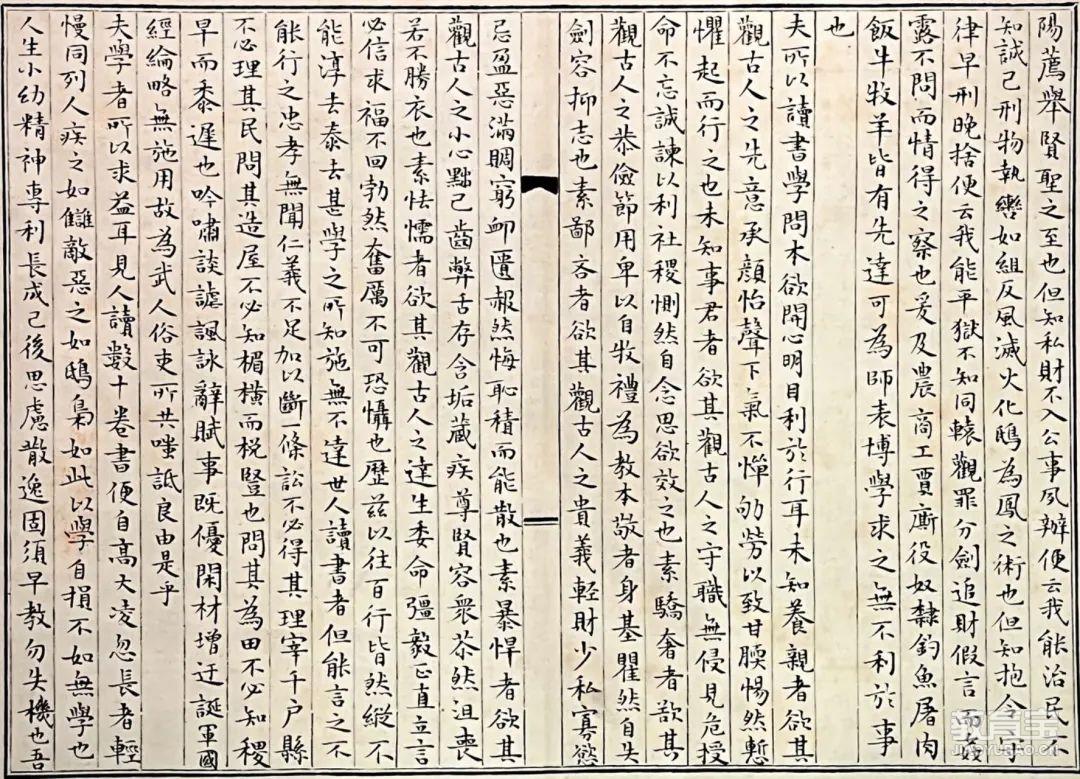 陽薦舉賢聖之至也但知私財不入公事夙辦便云我能治民不
知誠己刑物執轡如組反風滅火化鴟為鳳之術也但知抱令守
律早刑晚捨便云我能平獄不知同轅觀罪分劍追財假言而姦
露不問而情得之察也爰及農商工賈廝役奴隸釣魚屠肉
飯牛牧羊皆有先達可為師表博學求之無不利於事
也
夫所以讀書學問本欲開心明目利於行耳未知養親者欲其
觀古人之先意承顏怡聲下氣不憚劬勞以致甘腝惕然慙
懼起而行之也未知事君者欲其觀古人之守職無侵見危授
命不忘誠諫以利社稷惻然自念思欲效之也素驕奢者欲其
觀古人之恭儉節用卑以自牧禮為教本敬者身基瞿然自失
劍容抑志也素鄙吝者欲其觀古人之貴義輕財少私寡慾
忌盈惡滿賙窮卹匱赧然悔恥積而能散也素暴悍者欲其
觀古人之小心黜己齒弊舌存含垢藏疾尊賢容眾苶然沮喪
若不勝衣也素怯懦者欲其觀古人之達生委命彊毅正直立言
必信求福不回勃然奮厲不可恐懾也歷茲以往百行皆然縱不
能淳去泰去甚學之所知施無不達世人讀書者但能言之不
能行之忠孝無聞仁義不足加以斷一條訟不必得其理宰千戶縣
不必理其民問其造屋不必知楣橫而梲豎也問其為田不必知稷
早而黍遲也吟嘯談謔諷詠辭賦事既優閑材增迂誕軍國
經綸略無施用故為武人俗吏所共嗤詆良由是乎
夫學者所以求益耳見人讀數十卷書便自高大凌忽長者輕
慢同列人疾之如讎敵惡之如鴟梟如此以學自損不如無學也
人生小幼精神專利長成已後思慮散逸固須早教勿失機也吾
教育宝
JIAOYUBAO.CN